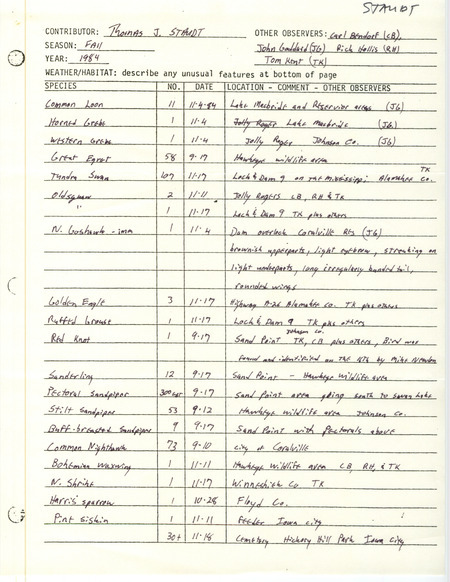 STAUDT
CONTRIBUTOR: Thomas J. STAUDT OTHER OBSERVERS: Carl Bendorf (CB),
SEASON: Fall John Goddard (JG) Rick Hollis (RH)
YEAR: 1984 Tom Kent (TK)
WEATHER/HABITAT: describe any unusual features at bottom of page
SPECIES NO. DATE LOCATION - COMMENT - OTHER OBSERVERS
Common Loon 11 11-4-84 Lake Macbride and Reservior areas (JG)
Horned Grebe 1 11-4 Jolly Roger Lake Macbride (JG)
Western Grebe 1 11-4 Jolly Roger Johnson Co. (JG)
Great Egret 58 9-17 Hawkeye wildlife area
Tundra Swan 107 11-17 Lock & Dam 9 on the Mississippi Alamakee Co. TK
Oldsquaw 2 11-11 Jolly Rogers CB, RH & TK
" 1 11-17 Lock & Dam 9 TK plus others
N. Goshawk - imm 1 11-4 Dam overlook Coralville Rs (JG)
brownish upperparts, light eyebrow, streaking on
light underparts, long irregularly banded tail,
rounded wings
Golden Eagle 3 11-17 Highway A-26 Alamakee Co. TK plus others
Ruffed Grouse 1 11-17 Lock & Dam 9 TK plus others
Red Knot 1 9-17 Sand Point Johnson Co. TK, CB plus others, Bird was
found and identified on the 16th by Mike Newlon
Sanderling 12 9-17 Sand Point - Hawkeye Wildlife area
Pectoral Sandpiper 300 est 9-17 Sand Point area going south to Swan Lake
Stilt Sandpiper 53 9-12 Hawkeye wildlife area Johnson Co.
Buff-breasted Sandpiper 9 9-17 Sand Point with Pectorals above
Common Nighthawk 73 9-10 city of Coralville
Bohemian Waxwing 1 11-11 Hawkeye Wildlife area CB, RH, & TK
N. Shrike 1 11-17 Winneshiek Co TK
Harris' sparrow 1 10-28 Floyd Co.
Pine Siskin 1 11-11 Feeder Iowa city
30+ 11-18 Cemetery Hickory Hill Park Iowa City